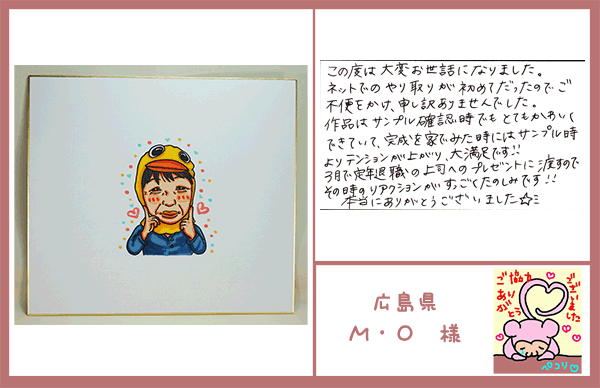 この度は大変お世話になりました。
ネットでのやり取りが初めてだったのでご
不便をかけ、申し訳ありませんでした。
作品はサンプル確認時でもとてもかわいく
できていて、完成を家でみた時にはサンプル時
よりテンションが上がり、大満足です!!
3月で定年退職の上司へのプレゼントに渡すので
その時のリアクションがすっごくたのしみです!!
本当にありがとうございました☆ミ
広島県
M・O 様
ご協力
ありがとう
ございました
ペコリ